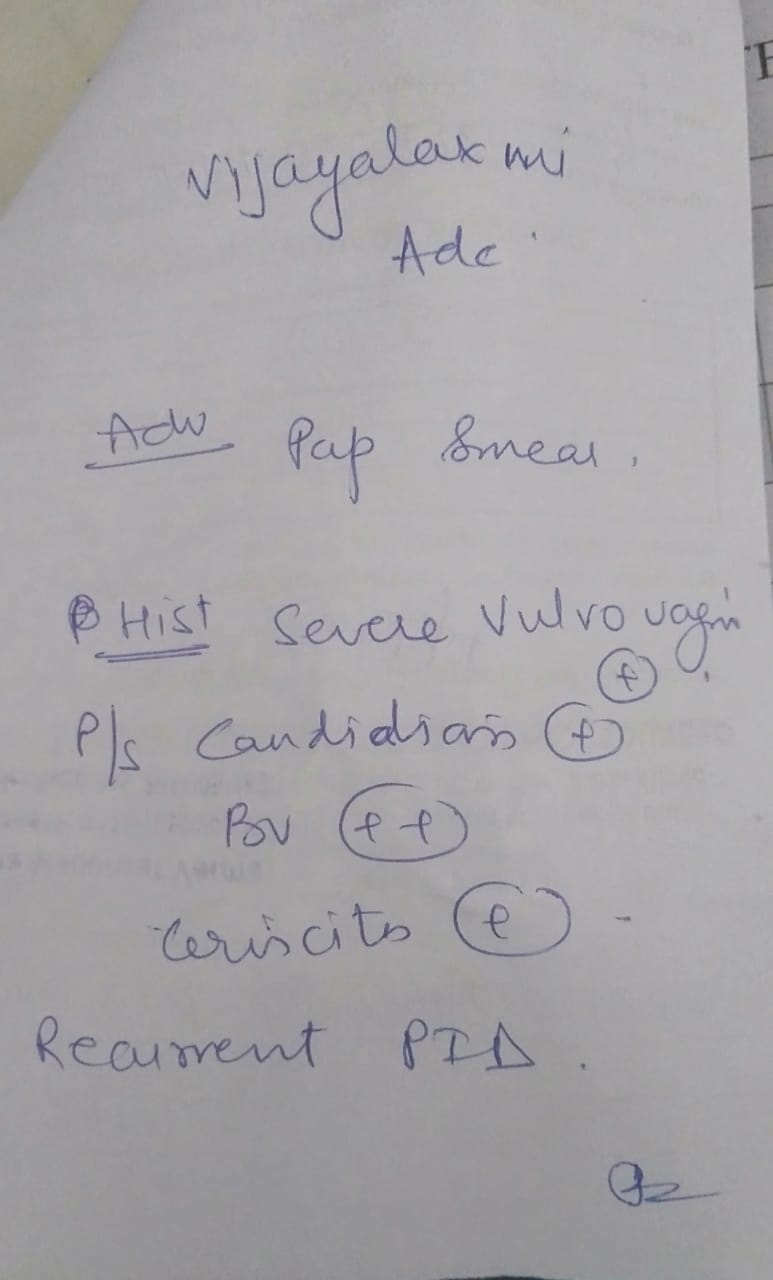 Vijayalaxmi
Adc
Adv Pap Smear.
Hist Severe Vulvo vagin
(+)
P/s Candidiasis (+)
BV (++)
Cerviscitis (+) -
Recurrent PID.